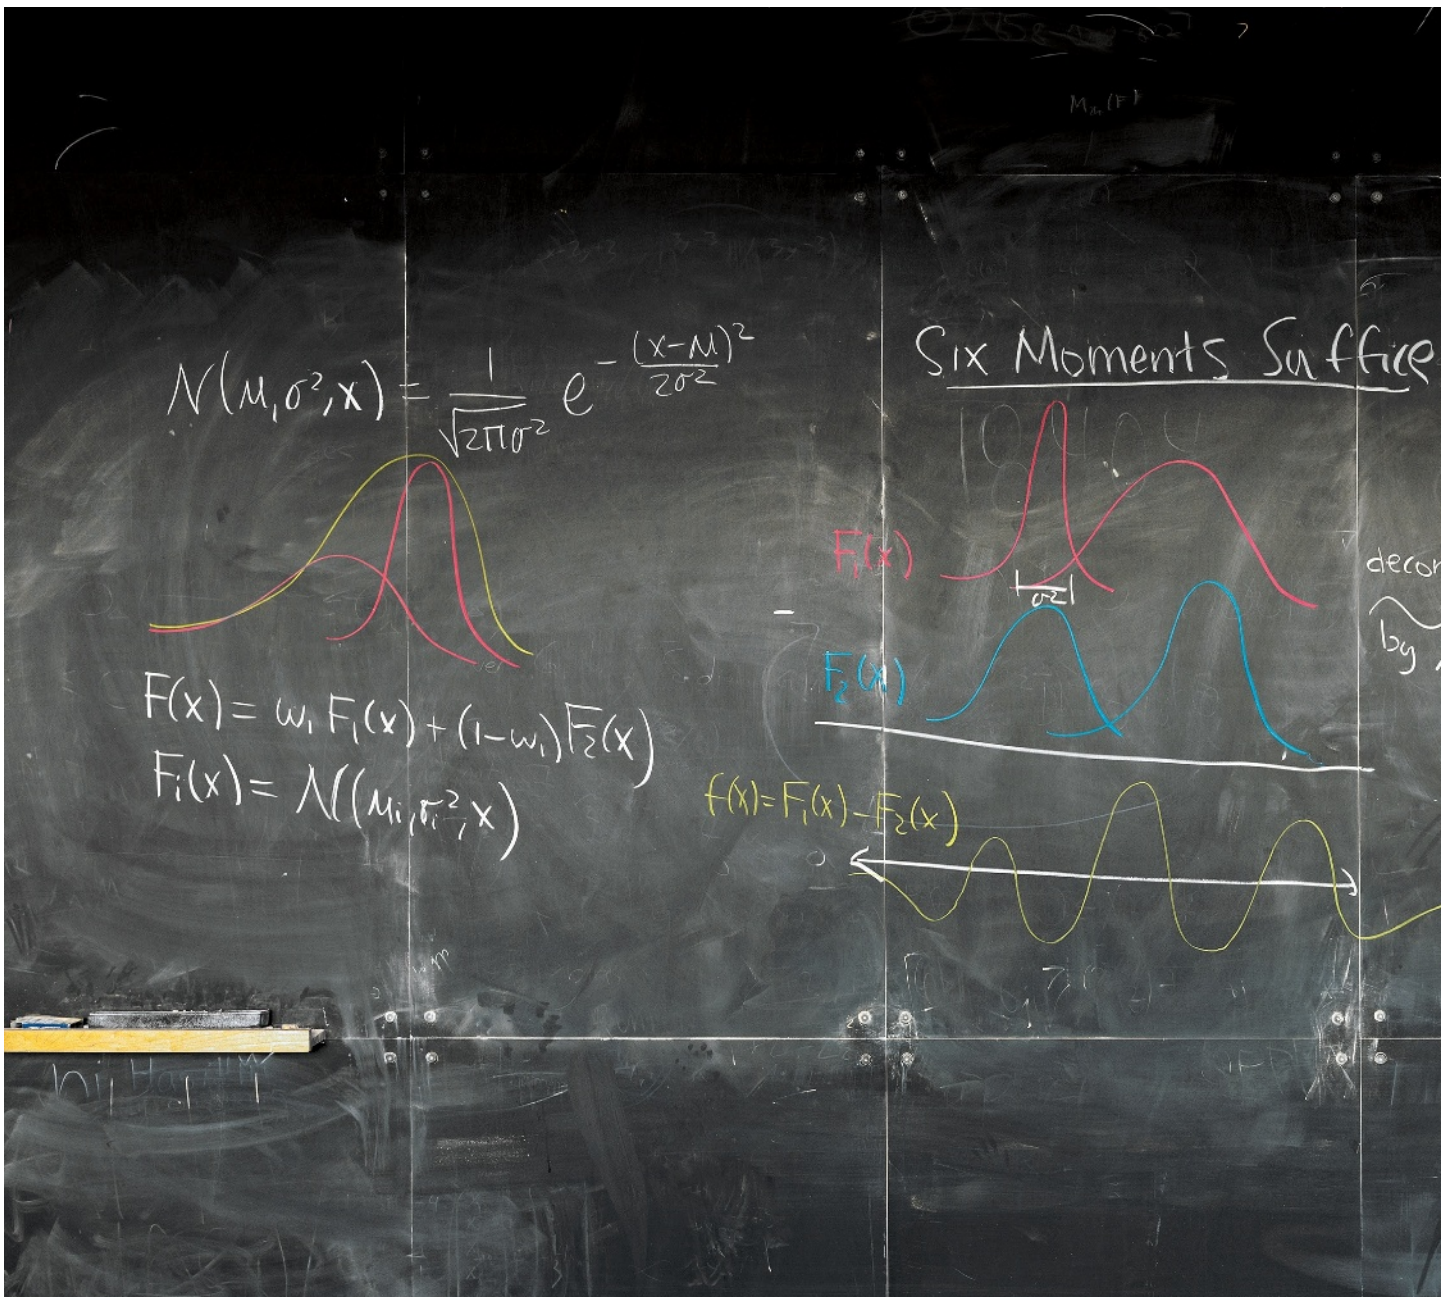 N(μ,σ²,x) = 1/√2πσ² e^-(x-μ)²/2σ²
F(x) = w₁ F₁(x) + (1-w₁) F₂(x)
Fᵢ(x) = N(μᵢ,σᵢ²,x)
Six Moments Suffice
F₁(x)
σ²
F₂(x)
f(x) = F₁(x) - F₂(x)
0
by